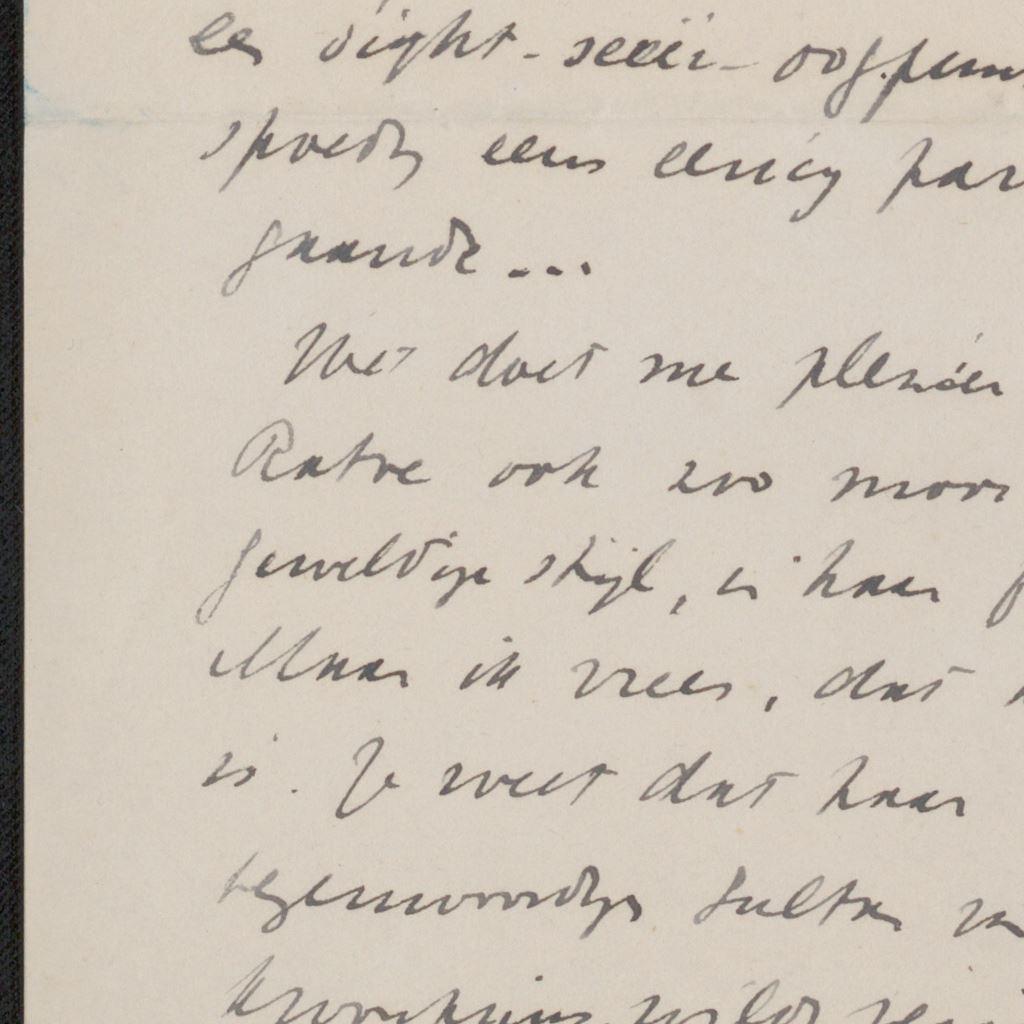 een sight-seeïn-oogpunt
spoedig eens eenig par
gaande...
Het doet me plezier
Ratoe ook zoo mooi
geweldige stijl, in haar
Maar ik vrees, dat
is. Je weet dat haar
tegenwoordige Sultan